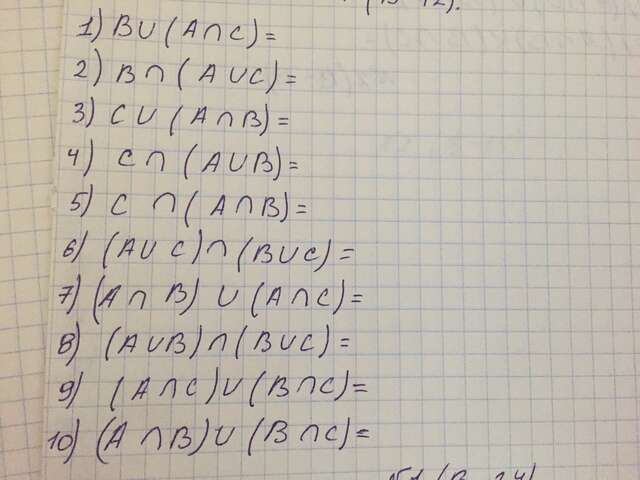 1) B∪(A∩C)=
2) B∩(A∪C)=
3) C∪(A∩B)=
4) C∩(A∪B)=
5) C∩(A∩B)=
6) (A∪C)∩(B∪C)=
7) (A∩B)∪(A∩C)=
8) (A∪B)∩(B∪C)=
9) (A∩C)∪(B∩C)=
10) (A∩B)∪(B∩C)=